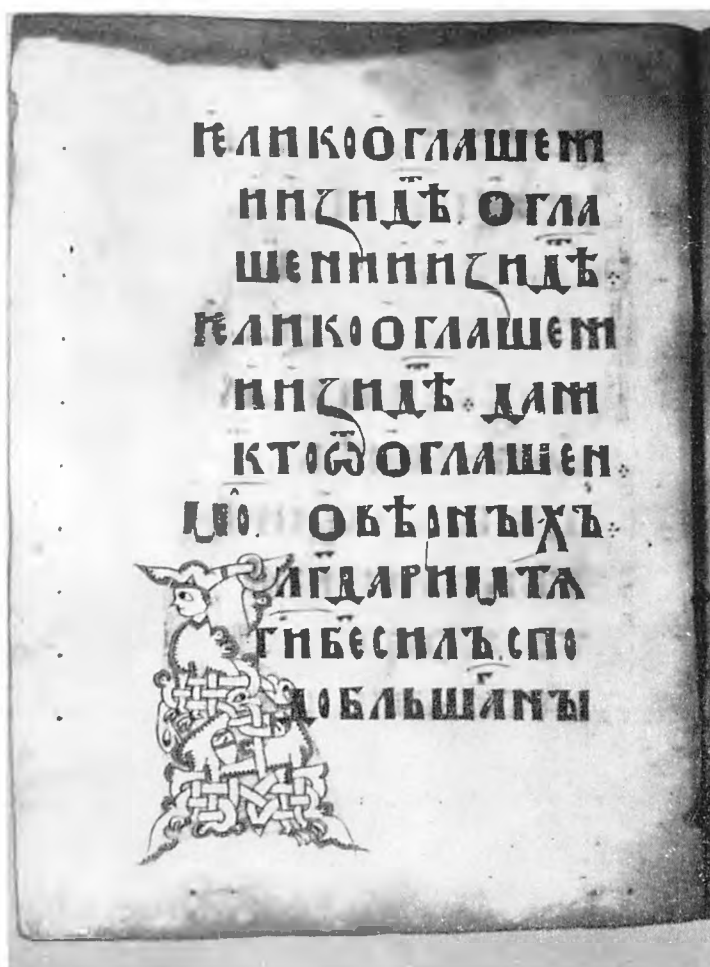 ѤЛИКООГЛАШЕНІ
ИИꙀИДѢТЕ. ОГЛА
ШЕНИИИꙀИДѢТЕ
ѤЛИКООГЛАШЕНІ
ИИꙀИДѢТЕ. ДАНІ
КТОѾОГЛАШЕН
МО. О ВѢРНЫХЪ
ЛГДАРИМТѦ
ГИБЕСИЛЪ.СПО
ДОБЛЬШАНЫ